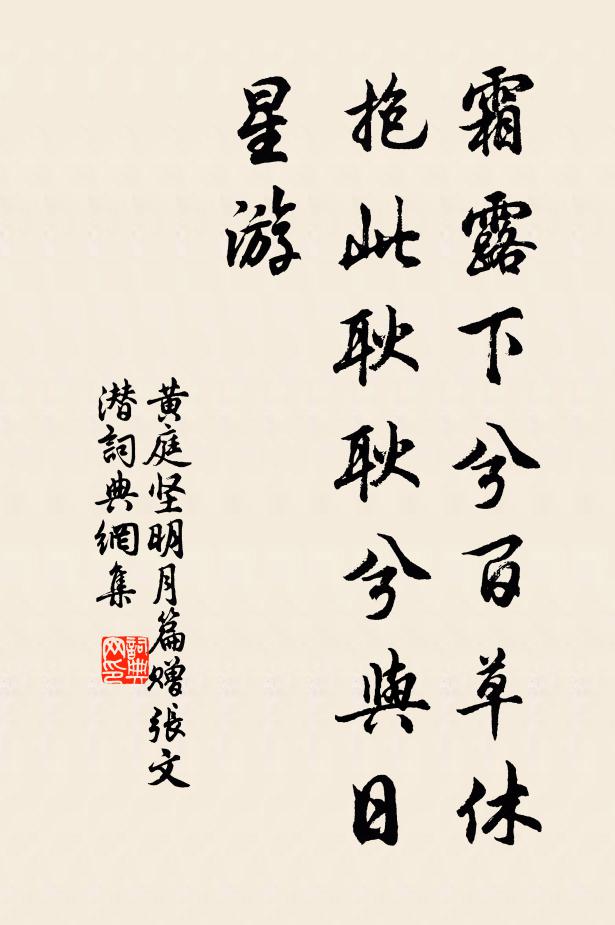 霜露下兮百草休
抱此耿耿兮與日
星游
黄庭坚明月篇赠張文
潜詞典網集
詞典
网印